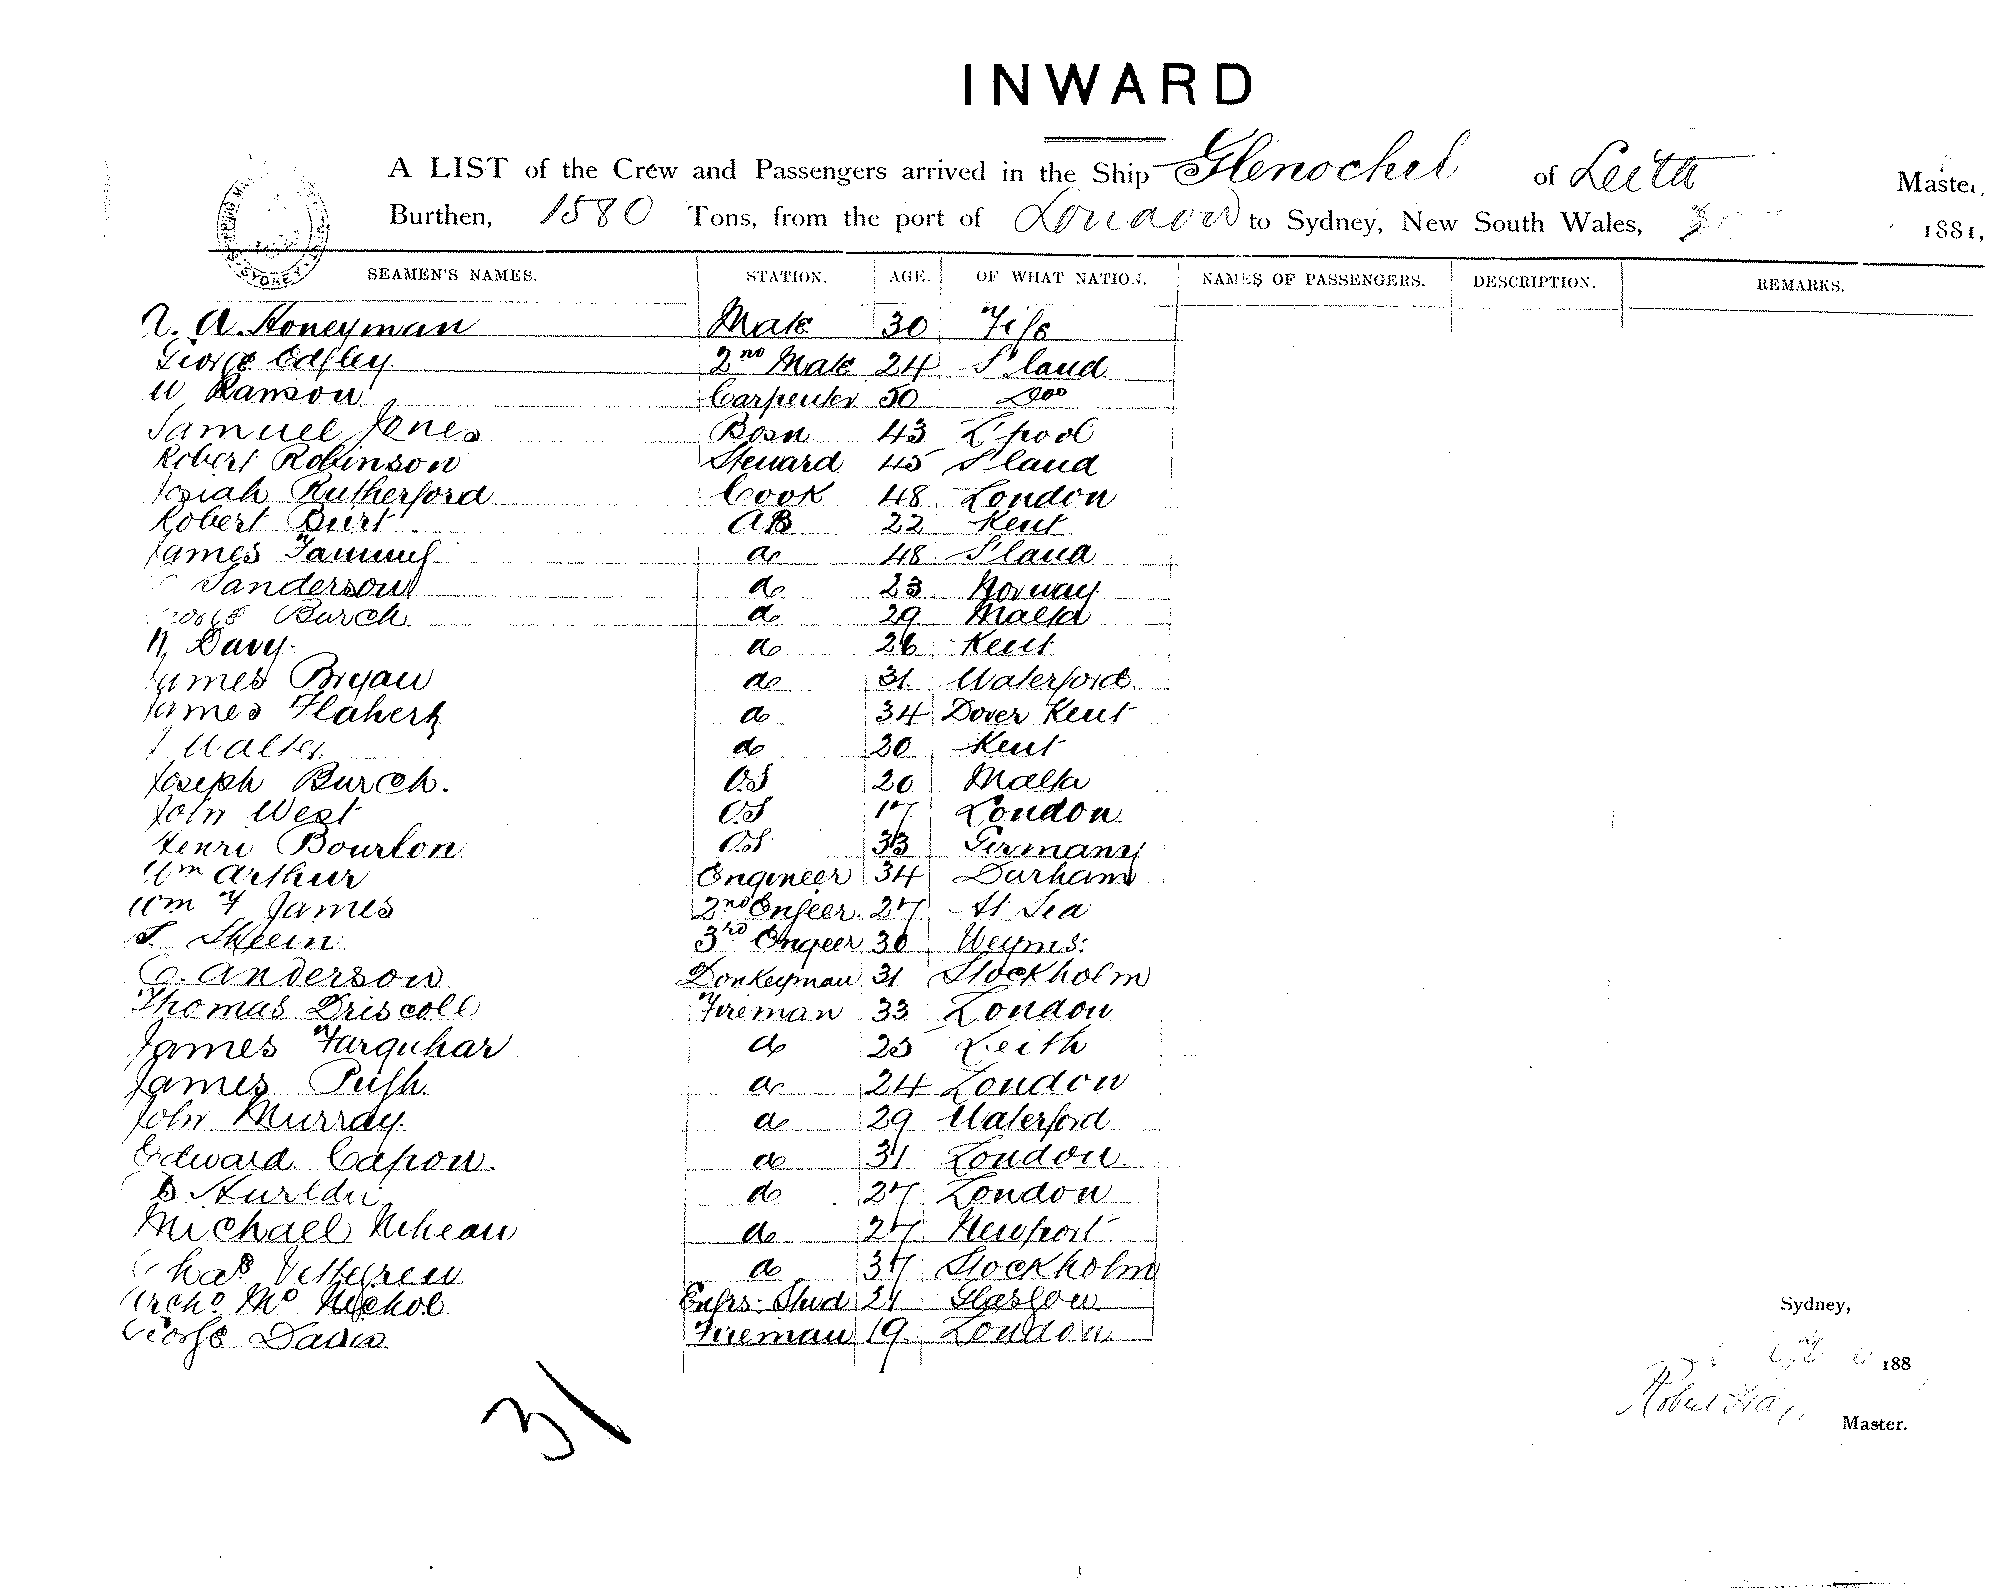 INWARD
A LIST of the Crew and Passengers arrived in the Ship Glenochel of Leith Master,
Burthen, 1580 Tons, from the port of London to Sydney, New South Wales, 1881,
SEAMEN'S NAMES. STATION. AGE. OF WHAT NATION. NAMES OF PASSENGERS. DESCRIPTION. REMARKS.
A. Honeyman Mate 30 Fife
George Edgley 2nd Mate 24 S'land
W Ranson Carpenter 50 Doo
Samuel Jones Bosn 43 L'pool
Robert Robinson Steward 45 S'land
Josiah Rutherford Cook 48 London
Robert Burt AB 22 Kent
James Tammy do 48 S'land
Sanderson do 23 Norway
Burch do 29 Malta
Davy do 26 Kent
James Bryan do 31 Waterford
James Flaherty do 34 Dover Kent
Walter do 30 Kent
Joseph Burch. OS 20 Malta
John West OS 17 London
Henri Bourlon OS 33 Germany
Wm Arthur Engineer 34 Durham
Wm F James 2nd Engeer 27 At Sea
Skeen 3rd Engeer 30 Weyms:
C. Anderson Donkeyman 31 Stockholm
Thomas Driscoll Fireman 33 London
James Farquhar do 25 Leith
James Pugh do 24 London
John Murray do 29 Waterford
Edward Capon. do 31 London
do 27 London
Michael do 27 Newport
Chas do 37 Stockholm
Archd Mc Nichol Engrs. Stwd 21 Glasgow
George Davis Fireman 19 London
31
Sydney,
188
Robert
Master.